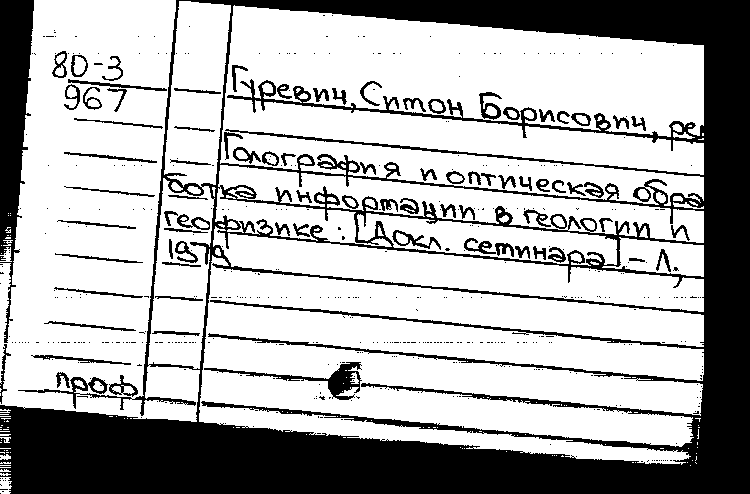 80-3
967
Гуревич, Симон Борисович, ре
Голография и оптическая обра
ботка информации в геологии и
геофизике: [Докл. семинара]. – Л.,
1979
проф